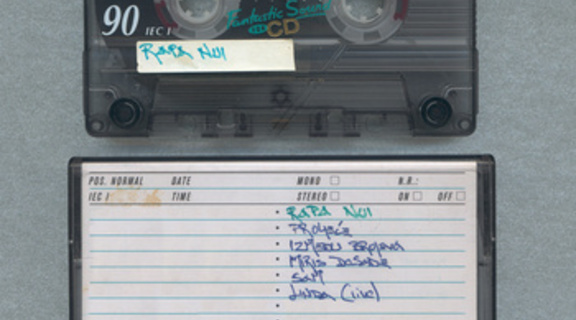 90 IEC I
Fantastic Sound
CD
RAPA NUI
A
POS. NORMAL DATE MONO N.R.:
IEC I TIME STEREO ON OFF
RAPA NUI
PROLJEĆE
IZMEĐU BROJEVA
MIRIS DOSADE
SAM
LINDA (live)